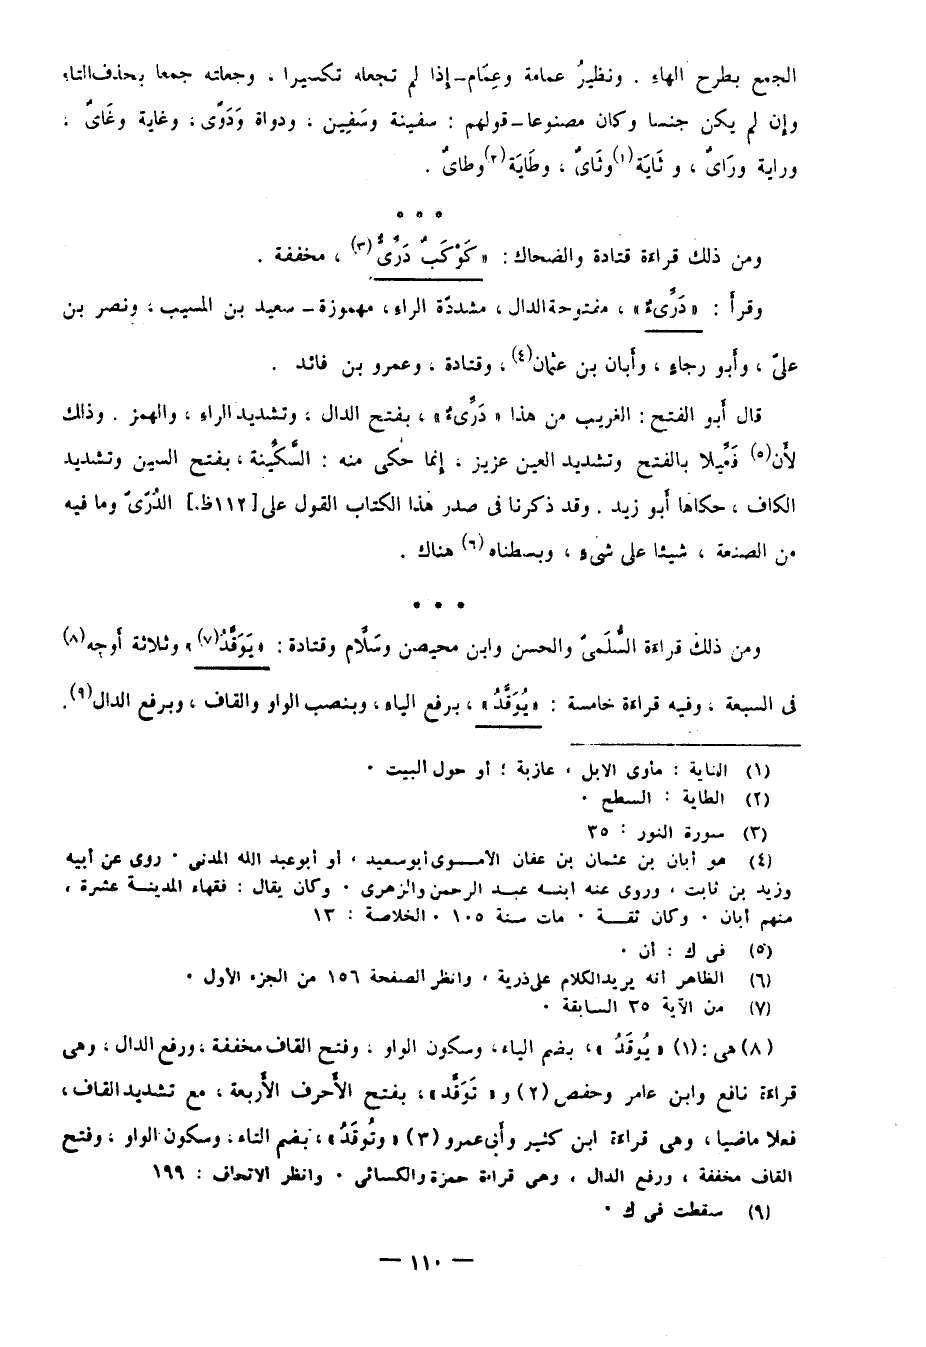 الجمع بطرح الهاء . ونظيرُ عمامة وعِمَام – إذا لم تجعله تكسيرا ، وجعلته جمعا بحذف التاء
وإن لم يكن جنسا وكان مصنوعا – قولهم : سفينة وسَفِين ، ودواة وَدَوًى، وغاية وغَاىٌ ،
وراية ورَاىٌ ، و ثَايَة(١) وثَاىٌ ، وطَايَة(٢) وطاىٌ .
* * *
ومن ذلك قراءة قتادة والضحاك : « كَوْكَبٌ دَرِّىٌّ(٣) ، مخففة .
وقرأ : « دَرِّىءٌ » ، مفتوحة الدال ، مشددّة الراء، مهموزة – سعيد بن المسيب ، ونصر بن
علىّ ، وأبو رجاء ، وأبان بن عثمان(٤) ، وقتادة ، وعمرو بن فائد .
قال أبو الفتح : الغريب من هذا « دَرِّىءٌ » ، بفتح الدال ، وتشديد الراء ، والهمز . وذلك
لأن(٥) فَعِّيلا بالفتح وتشديد العين عزيز ، إنما حُكى منه : السَّكِّينة ، بفتح السين وتشديد
الكاف ، حكاها أبو زيد . وقد ذكرنا فى صدر هذا الكتاب القول على [ ١١٢ظ.] الدُرِّىّ وما فيه
من الصنعة ، شيئا على شىء ، وبسطناه(٦) هناك .
* * *
ومن ذلك قراءة السُّلَمىّ والحسن وابن محيصن وسَلَّام وقتادة : « يَوَقَّدُ(٧) » وثلاثة أوجه(٨)
فى السبعة ، وفيه قراءة خامسة : « يُوَقَّدُ » ، برفع الياء ، وبنصب الواو والقاف ، وبرفع الدال(٩).
(١) الثاية : مأوى الابل ، عازبة ؛ أو حول البيت ٠
(٢) الطاية : السطح ٠
(٣) سورة النور : ٣٥
(٤) هو أبان بن عثمان بن عفان الأموى أبو سعيد ، أو أبو عبد الله المدنى ٠ روى عن أبيه
وزيد بن ثابت ، وروى عنه ابنه عبد الرحمن والزهرى ٠ وكان يقال : فقهاء المدينة عشرة ،
منهم أبان ٠ وكان ثقة ٠ مات سنة ١٠٥ ٠ الخلاصة : ١٣
(٥) فى ك : أن ٠
(٦) الظاهر أنه يريد الكلام على ذرية ، وانظر الصفحة ١٥٦ من الجزء الأول ٠
(٧) من الآية ٣٥ السابقة ٠
(٨) هى : (١) « يُوقَدُ » ، بضم الياء، وسكون الواو ، وفتح القاف مخففة ، ورفع الدال ، وهى
قراءة نافع وابن عامر وحفص (٢) و « تَوَقَّدَ » ، بفتح الأحرف الأربعة ، مع تشديد القاف ،
فعلا ماضيا ، وهى قراءة ابن كثير وأبى عمرو (٣) « وتُوقَدُ » ، بضم التاء ، وسكون الواو ، وفتح
القاف مخففة ، ورفع الدال ، وهى قراءة حمزة والكسائى ٠ وانظر الاتحاف : ١٩٩
(٩) سقطت فى ك ٠
— ١١٠ —